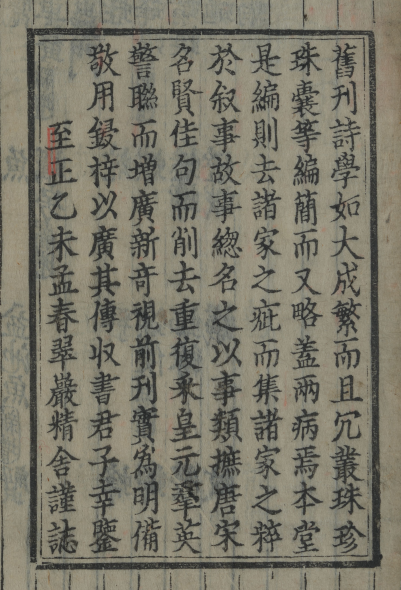 舊刊詩學如大成繁而且冗叢珠珍
珠囊等編簡而又略蓋兩病焉本堂
是編則去諸家之疵而集諸家之粹
於叙事故事緫名之以事類摭唐宋
名賢佳句而削去重復采皇元羣英
警聯而增廣新竒視前刊實為明備
敬用鋟梓以廣其傳収書君子幸鑒
至正乙未孟春翠巖精舍謹誌